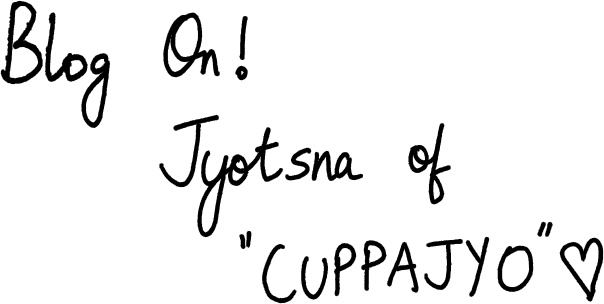 Blog On!
Jyotsna of
"CUPPAJYO" ♡